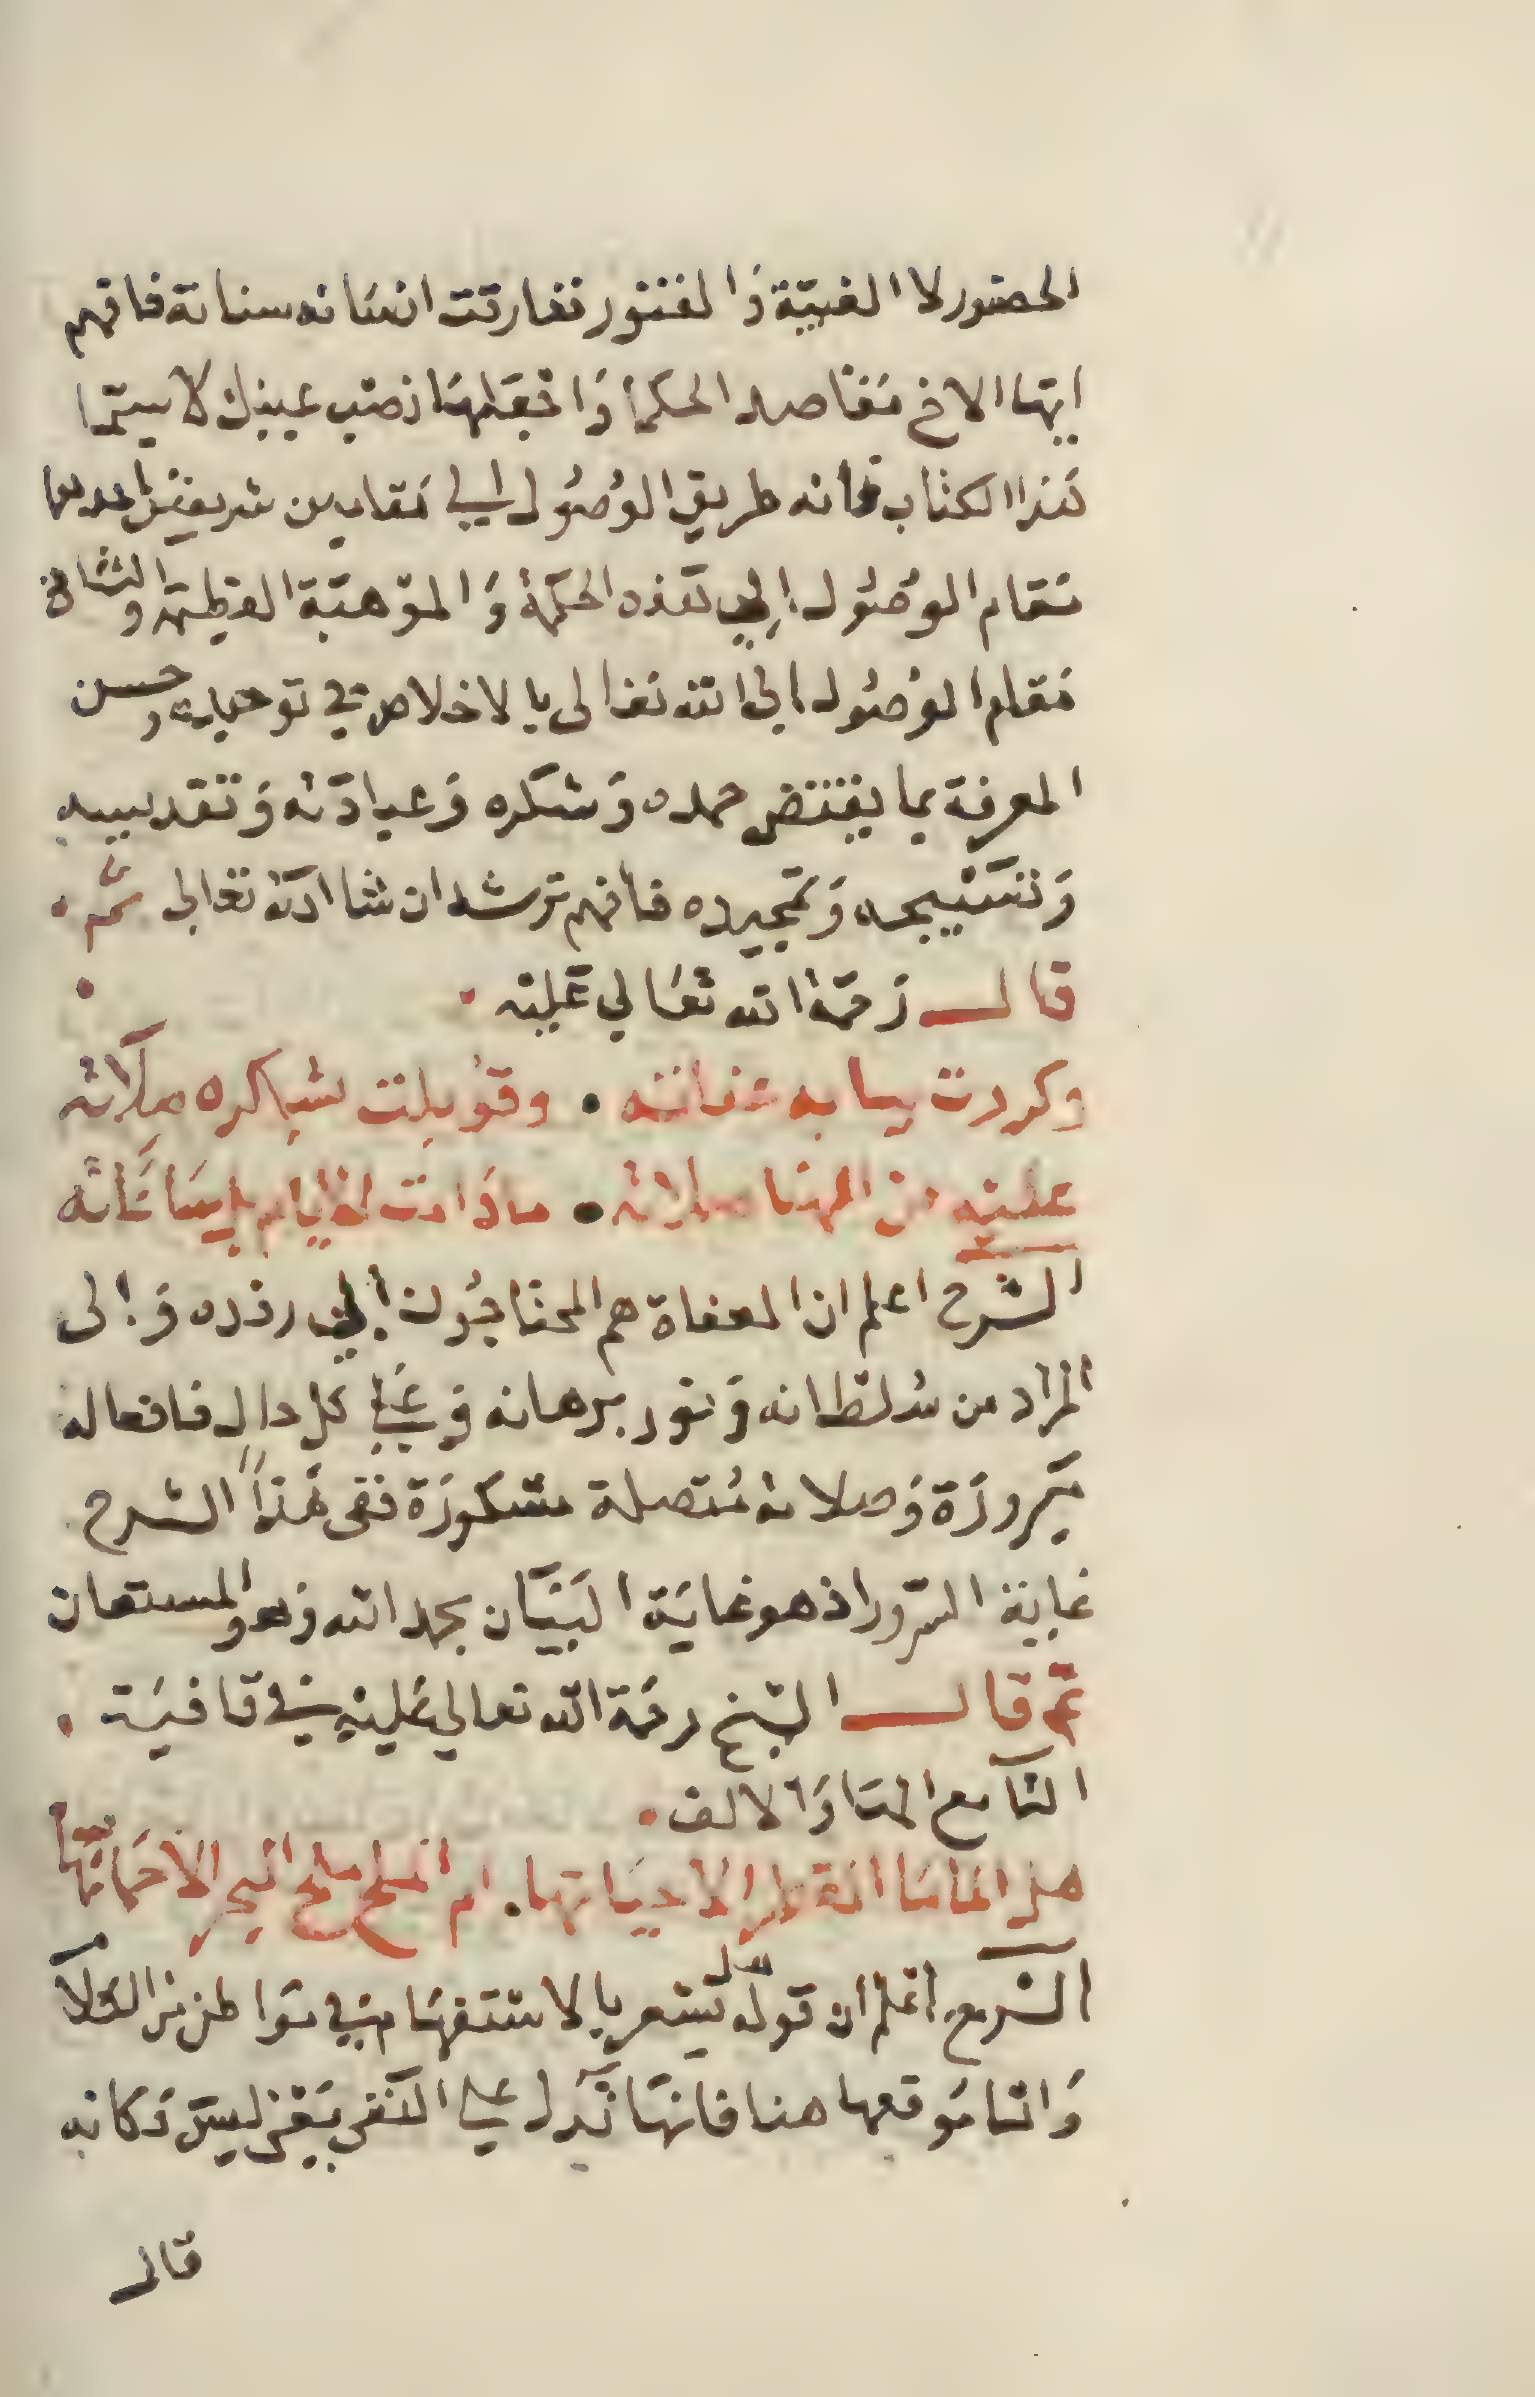 الحضور لا الغيبة والفتور ففارقت انسانه سناته فافهم
ايها الاخ مقاصد الحكما واجعلها نصب عينيك لا سيما
هذا الكتاب فانه طريق الوصول الي مقامين شريفين احدهما
مقام الوصول الي هذه الحكمة والموهبة العظيمة والثاني
مقام الوصول الى الله تعالى بالاخلاص في توحيده وحسن
المعرفة بما يقتضي حمده وشكره وعبادته وتقديسه
وتسبيحه وتمجيده فافهم ترشد ان شا الله تعالى ثم
قال رحمة الله تعالي عليه
وكررت ببابه عفاته . وقوبلت بشكره صلاته
عليه من الهنا صلاته . مادامت الايام ساعاته
الشرح اعلم ان العفاة هم المحتاجون الي رفده والى
المراد من سلطانه ونور برهانه وعلي كل حال فافعاله
مبرورة وصلاته متصلة مشكورة ففي هذا الشرح
غاية السرور اذ هو غاية البيان بحمد الله وهو المستعان
ثم قال الشيخ رحمة الله تعالي عليه في قافية
التا مع الها والالف .
هل الماسا القطر الا حياتها . ام الملح ملح البحر الا حماتها
الشرح اعلم ان قوله هل تشعر بالاستفهام في مواطن من الكلام
واما موقعها هنا فانها تدل علي النفي بمعنى ليس وكانه
قال